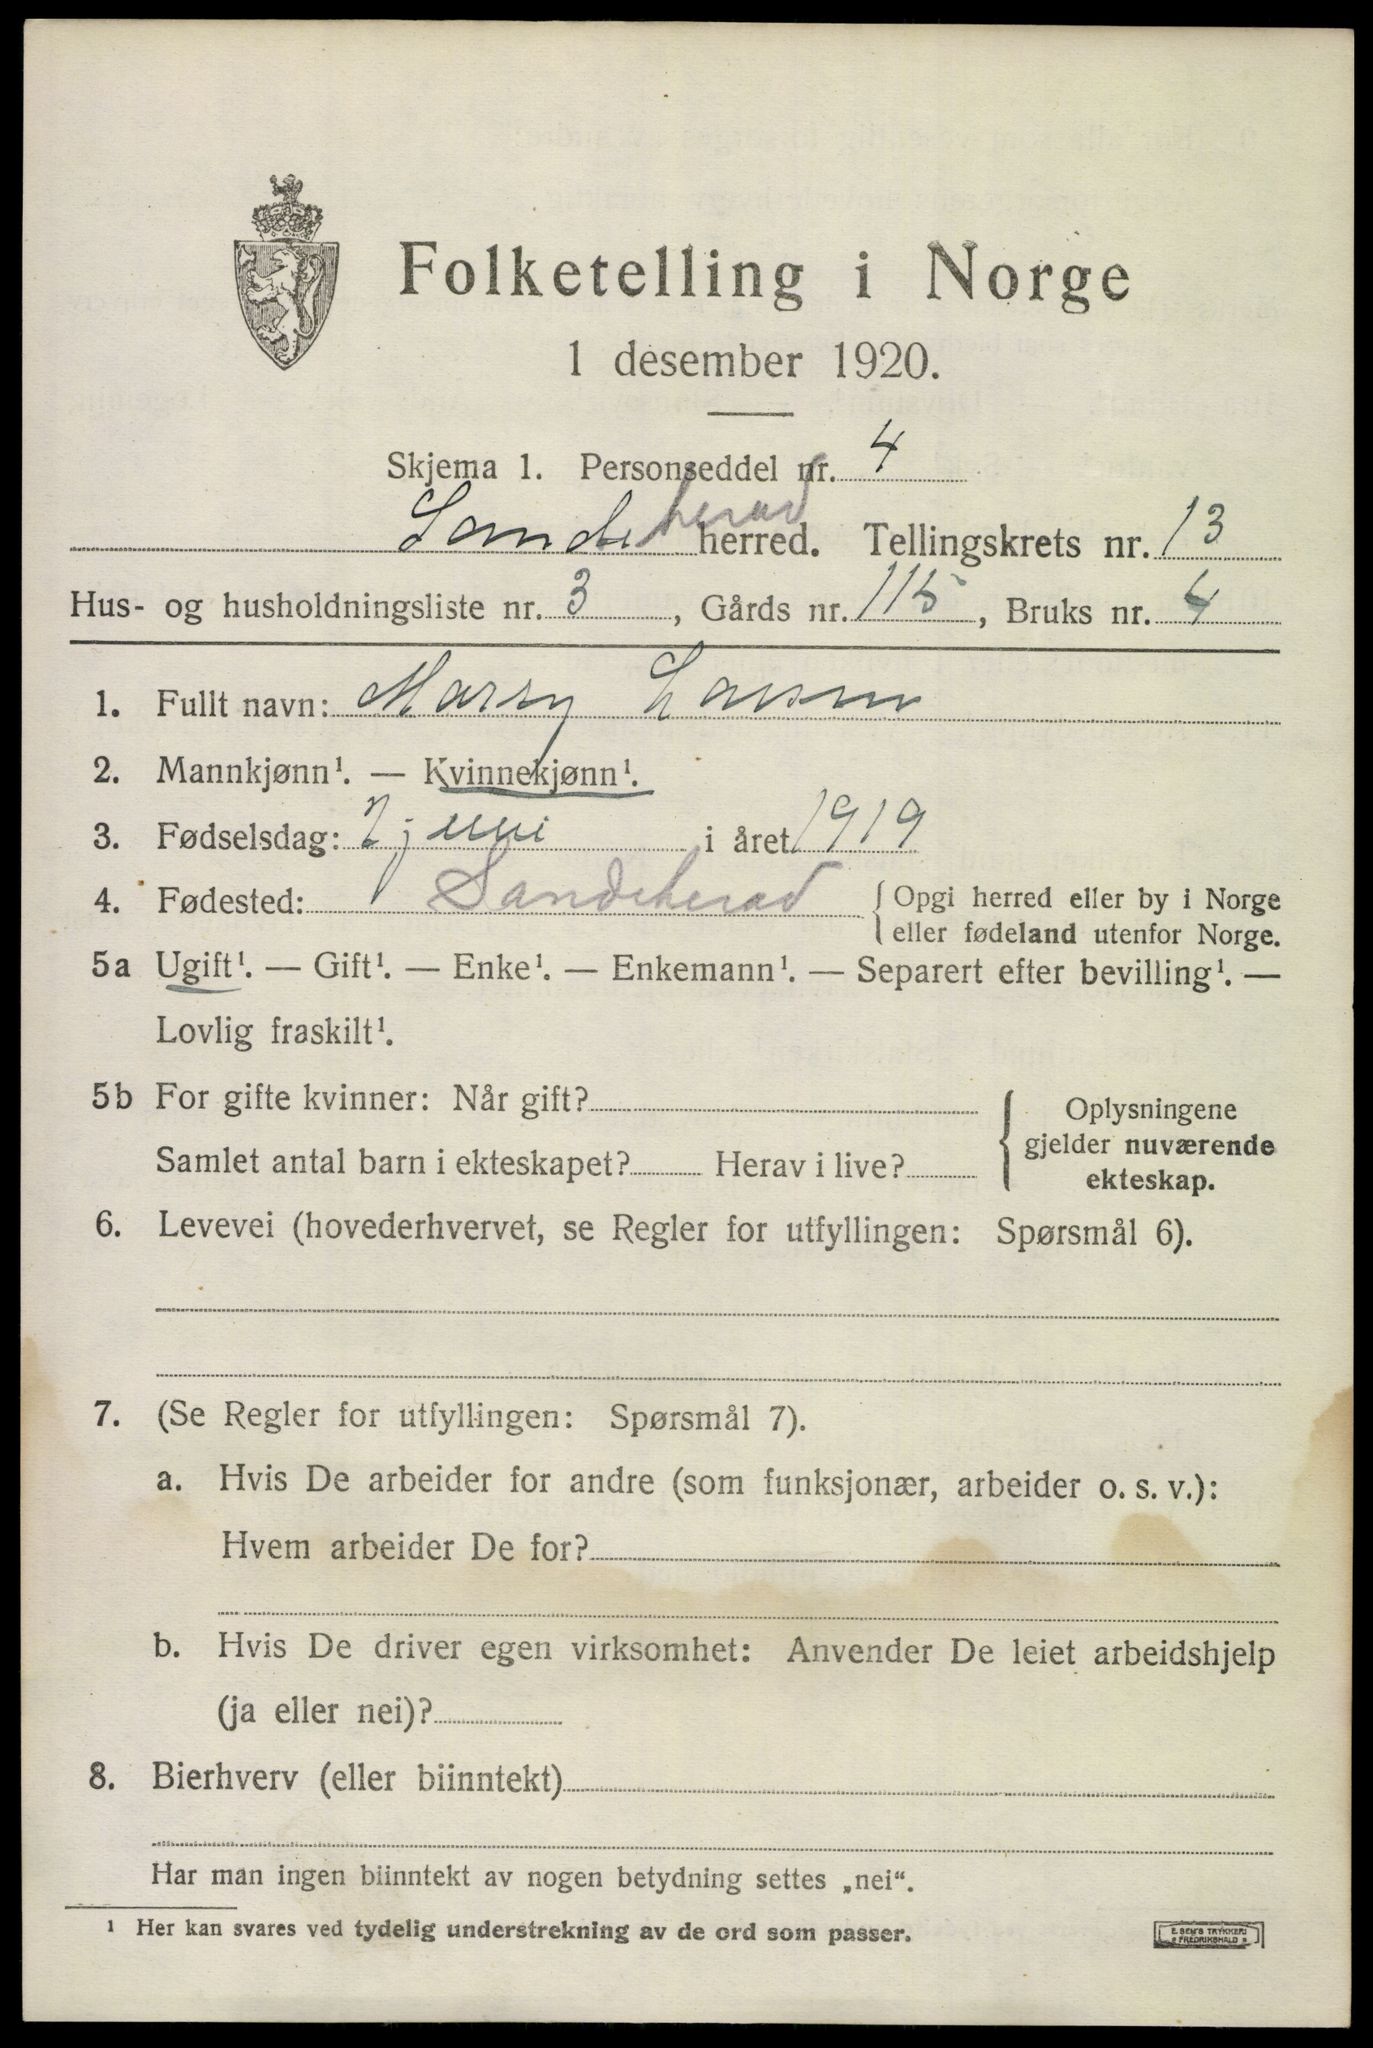 Folketelling i Norge
1 desember 1920.
Skjema 1. Personseddel nr. 4
Sandeherad herred. Tellingskrets nr. 13
Hus- og husholdningsliste nr. 3, Gårds nr. 115, Bruks nr. 4
1. Fullt navn: Marry Larsen
2. Mannkjønn¹. — Kvinnekjønn¹.
3. Fødselsdag: 7 juni i året 1919
4. Fødested: Sandeherad { Opgi herred eller by i Norge
eller fødeland utenfor Norge.
5a Ugift¹. — Gift¹. — Enke¹. — Enkemann¹. — Separert efter bevilling¹. —
Lovlig fraskilt¹.
5b For gifte kvinner: Når gift?
Samlet antal barn i ekteskapet? Herav i live?
{ Oplysningene
gjelder nuværende
ekteskap.
6. Levevei (hovederhvervet, se Regler for utfyllingen: Spørsmål 6).
7. (Se Regler for utfyllingen: Spørsmål 7).
a. Hvis De arbeider for andre (som funksjonær, arbeider o. s. v.):
Hvem arbeider De for?
b. Hvis De driver egen virksomhet: Anvender De leiet arbeidshjelp
(ja eller nei)?
8. Bierhverv (eller biinntekt)
Har man ingen biinntekt av nogen betydning settes „nei".
¹ Her kan svares ved tydelig understrekning av de ord som passer.
E SEM'S TRYKKERI
FREDRIKSHALD